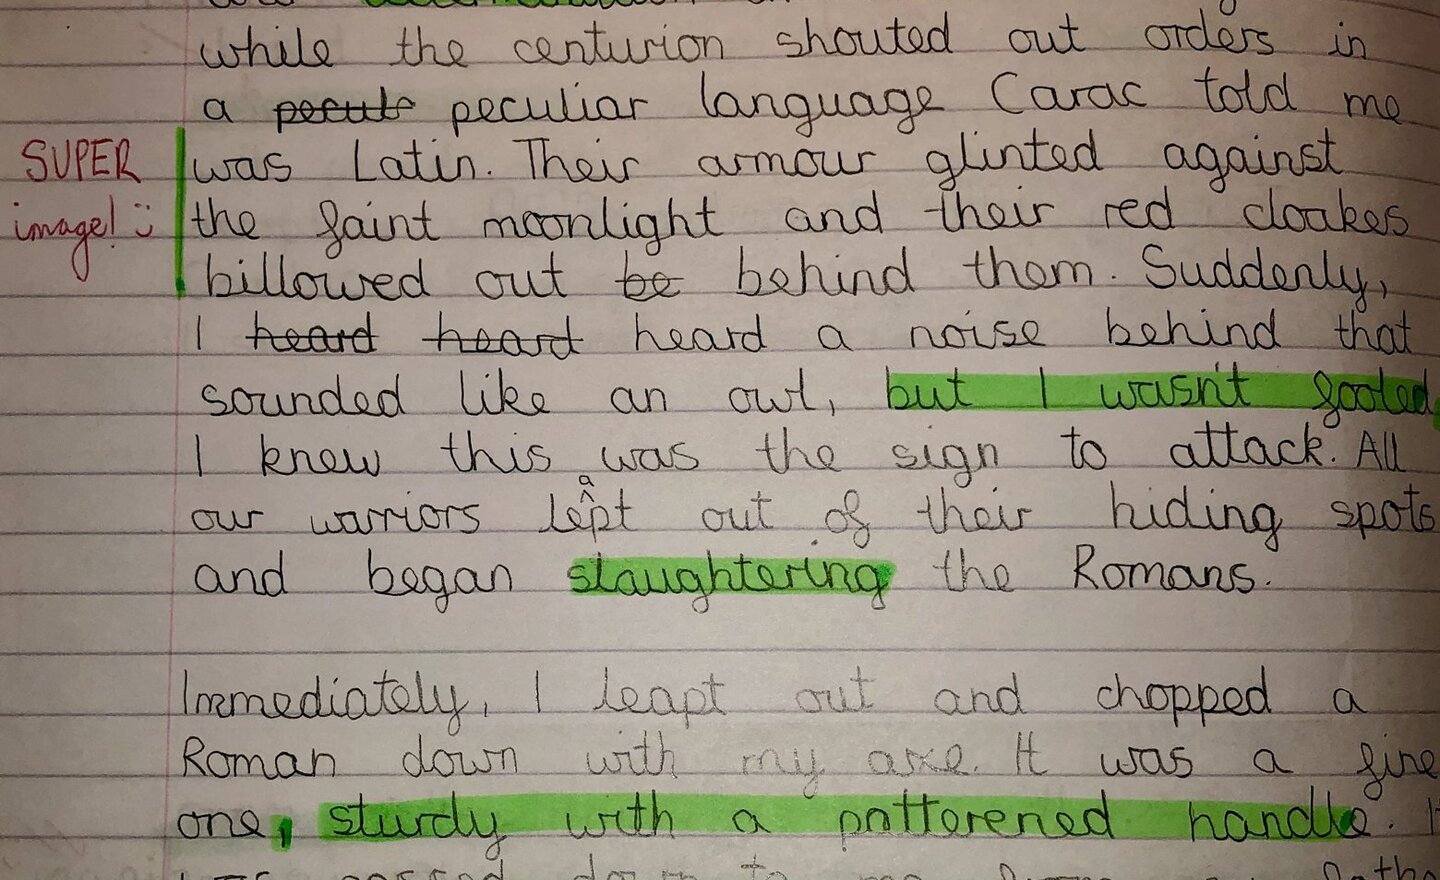 while the centurion shouted out orders in
a peculiar language Carac told me
SUPER
image!
was Latin. Their armour glinted against
the faint moonlight and their red cloakes
billowed out be behind them. Suddenly,
I heard heard heard a noise behind that
sounded like an owl, but I wasn't fooled,
I knew this was the sign to attack. All
our warriors leapt out of their hiding spots
and began slaughtering the Romans.
Immediately, I leapt out and chopped a
Roman down with my axe. It was a fine
one, sturdy with a patterened handle.